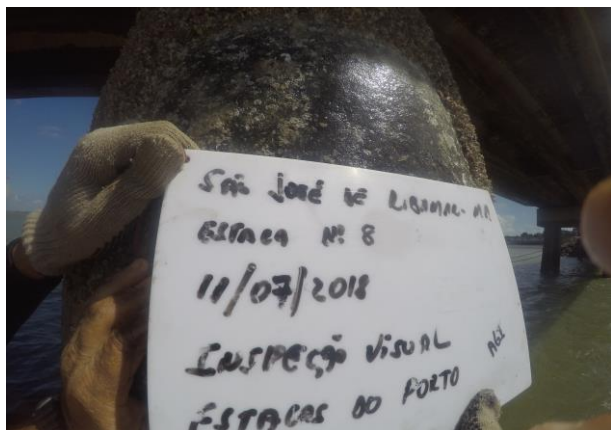 São José de Ribamar-MA
ESTACA Nº 8
11/07/2018
INSPEÇÃO VISUAL
ESTACAS DO PORTO